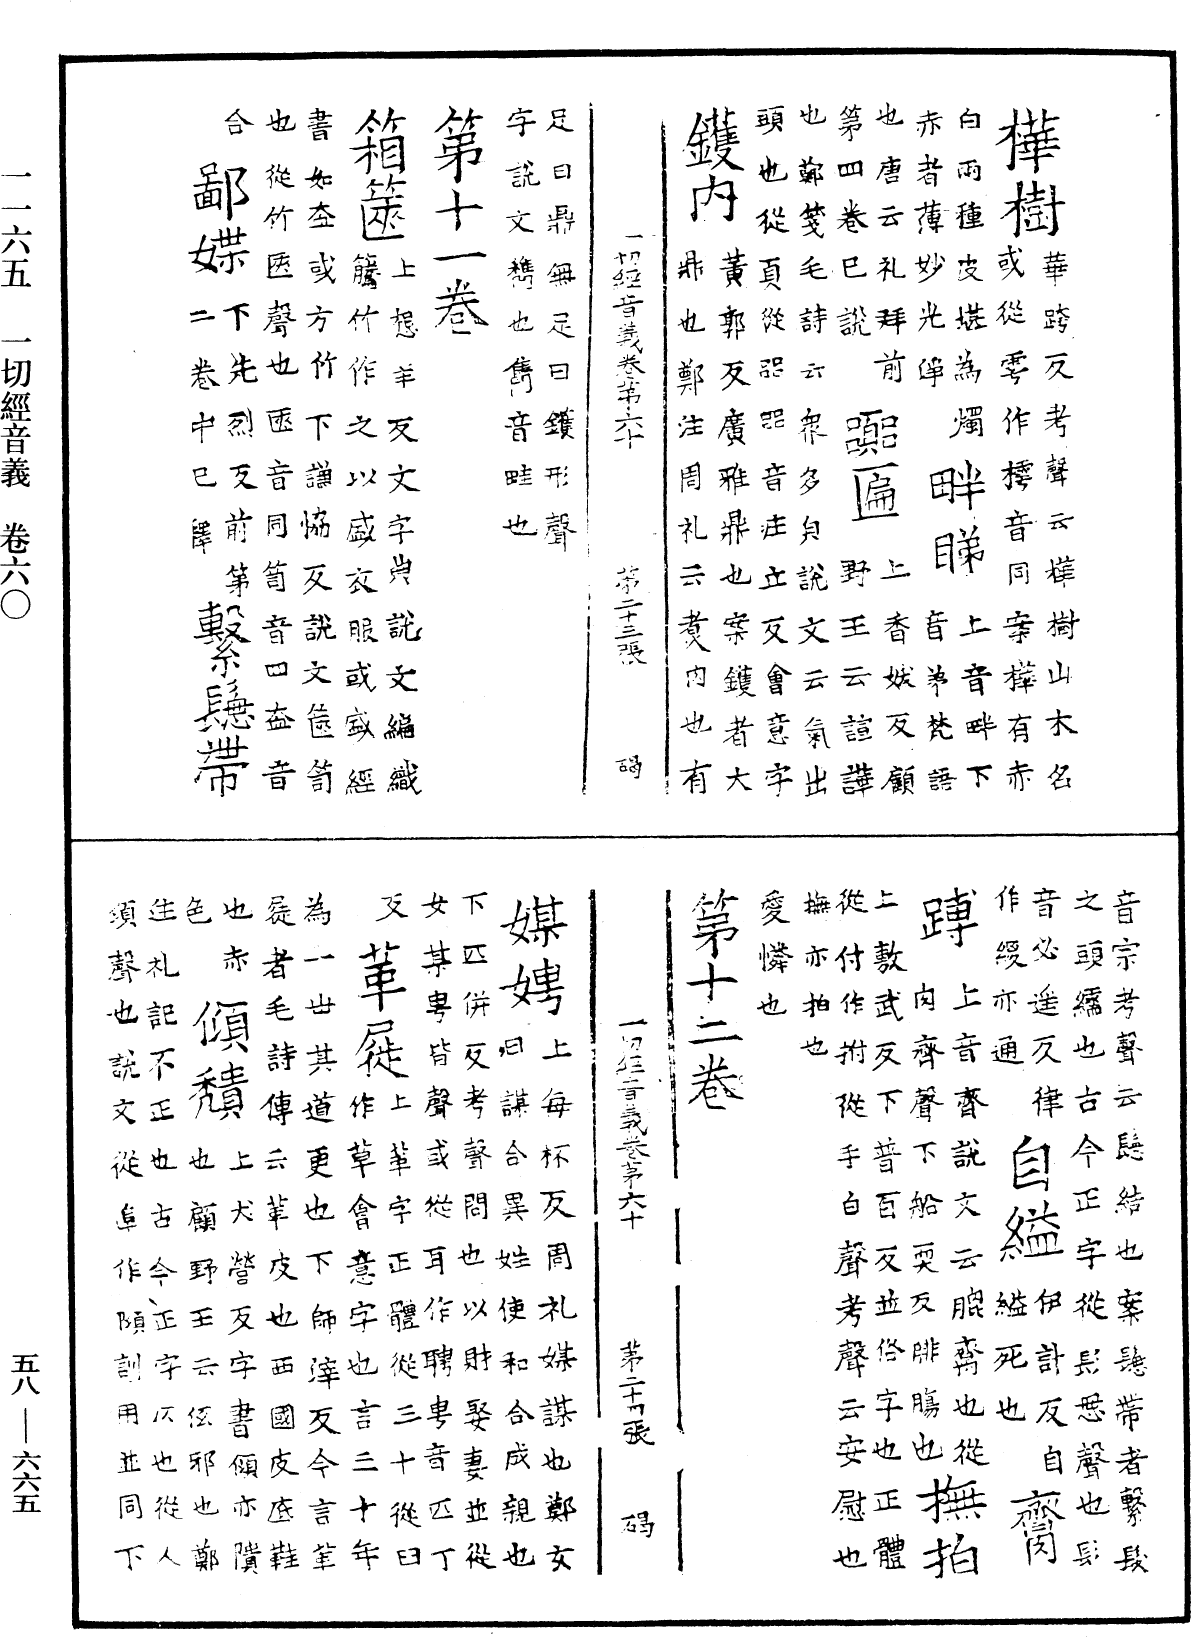 樺樹
華跨反考聲云樺樹山木名
或從雩作㯉音同案樺有赤
白兩種皮堪為燭
畔睇
上音畔下
赤者薄妙光淨
音弟梵語
也唐云礼拜前
嚻匾
上香妖反顧
第四卷已說
野王云諠譁
也鄭箋毛詩云衆多皃說文云氣出
頭也從頁從㗊㗊音壯立反會意字
鑊內
黃郭反廣雅鼎也案鑊者大
鼎也鄭注周礼云煑肉也有
一切經音義卷第六十 第二十三張 碣
足曰鼎無足曰鑊形聲
字說文鐫也雋音畦也
第十一卷
箱篋
上想羊反文字典說文編織
騰竹作之以盛衣服或盛經
書如奁或方竹下謙恊反說文篋笥
也從竹匧聲也匧音同笥音四奁音
合
鄙媟
下先烈反前第
二卷中已釋
繫㲯帶
音宗考聲云㲯結也案㲯帶者繫髮
之頭繻也古今正字從髟悤聲也髟
音必遥反律
自縊
伊計反自
作緵亦通
縊死也
齎肉
蹲
上音齊說文云䏶齎也從
肉齊聲下船耎反腓腸也
撫拍
上敷武反下普百反並俗字也正體
從付作拊從手白聲考聲云安慰也
撫亦拍也
愛憐也
第十二卷
一切經音義卷第六十 第二十四張 碣
媒娉
上每杯反周礼媒謀也鄭玄
曰謀合異姓使和合成親也
下匹併反考聲問也以財娶妻並從
女某甹皆聲或從耳作聘甹音匹丁
反
革屣
上革字正體從三十從臼
作草會意字也言三十年
為一世其道更也下師滓反今言革
屣者毛詩傳云革皮也西國皮底鞋
也赤
傾穨
上犬營反字書傾亦隤
色
也顧野王云伭邪也鄭
注礼記不正也古今正字仄也從人
頃聲也說文從阜作䧯訓用並同下
一一六五 一切經音義 卷六〇
五八—六六五